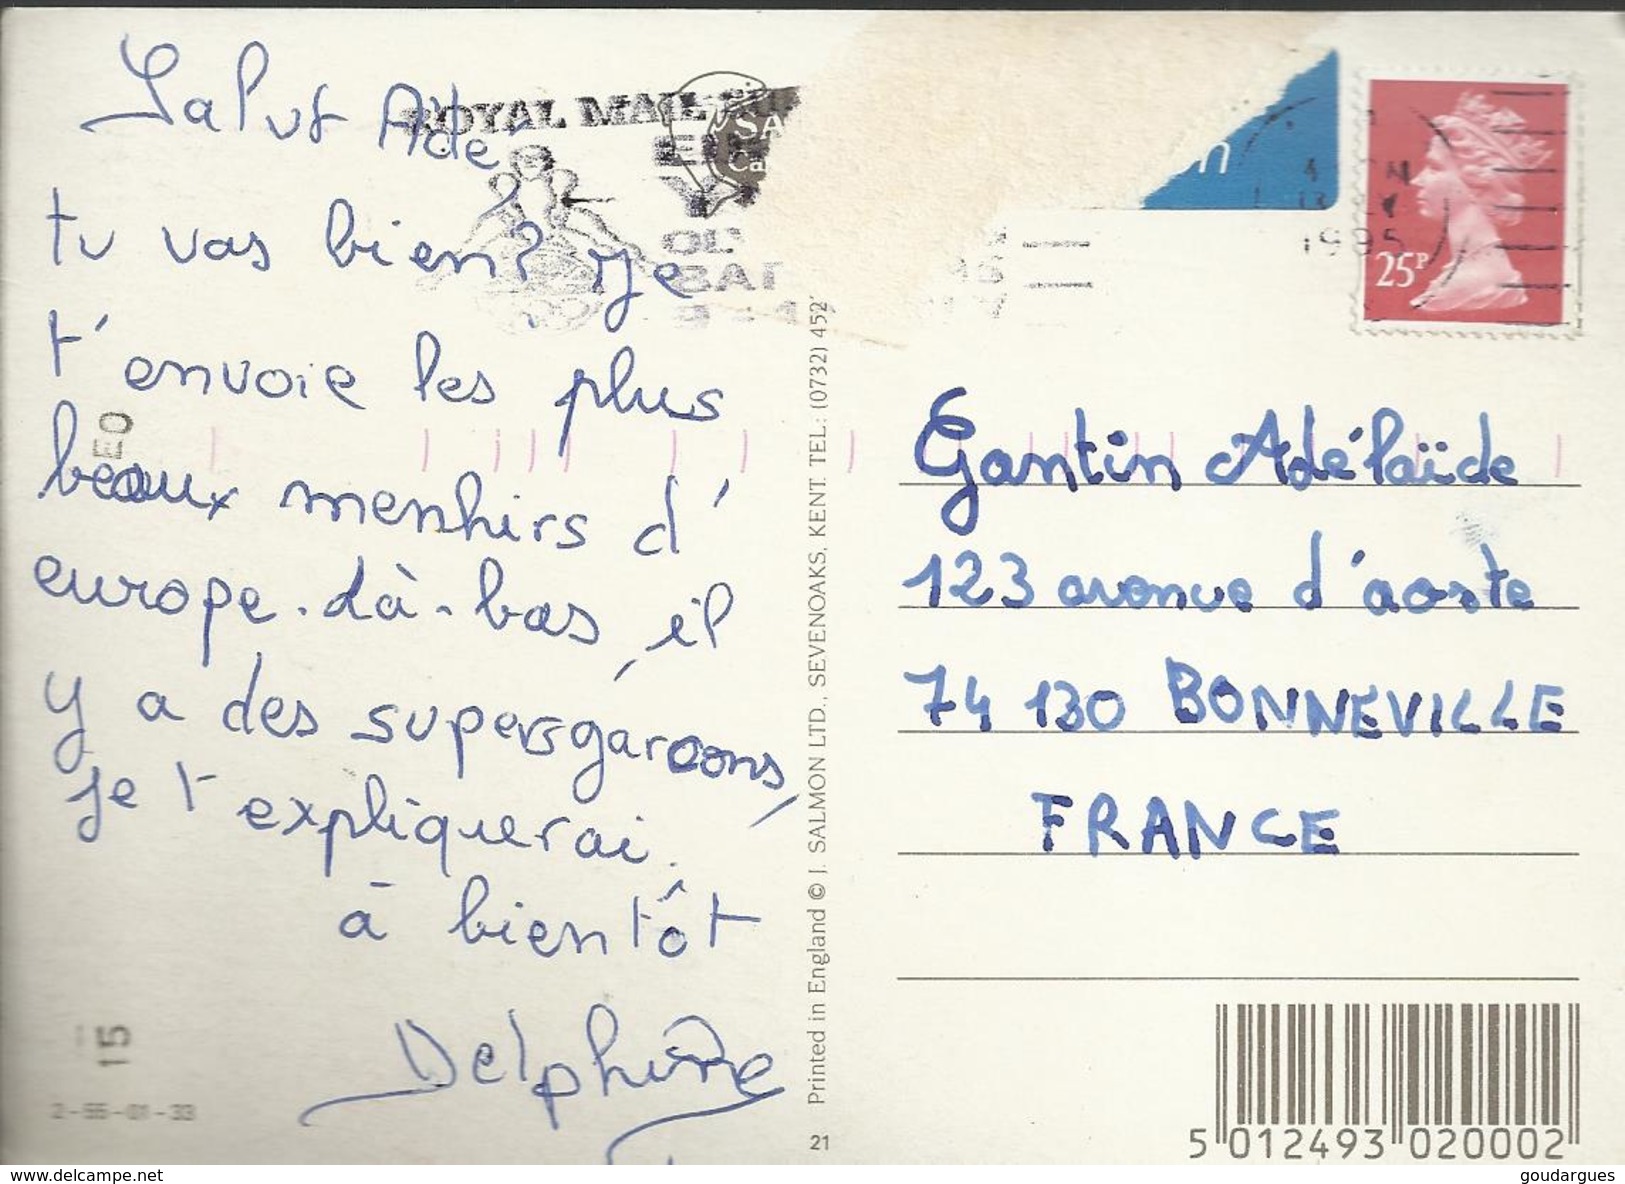 Salut Adé
tu vas bien? Je
t'envoie les plus
beaux menhirs d'
europe. Là-bas, il
y a des supersgarcons,
je t'expliquerai.
à bientôt
Delphine
ROYAL MAIL
EO
15
2-56-01-33
Printed in England © J. SALMON LTD., SEVENOAKS, KENT. TEL.: (0732) 452
21
1995
25P
Gantin Adélaïde
123 avenue d'aoste
74 130 BONNEVILLE
FRANCE
5 012493 020002
www.delcampe.net
goudargues